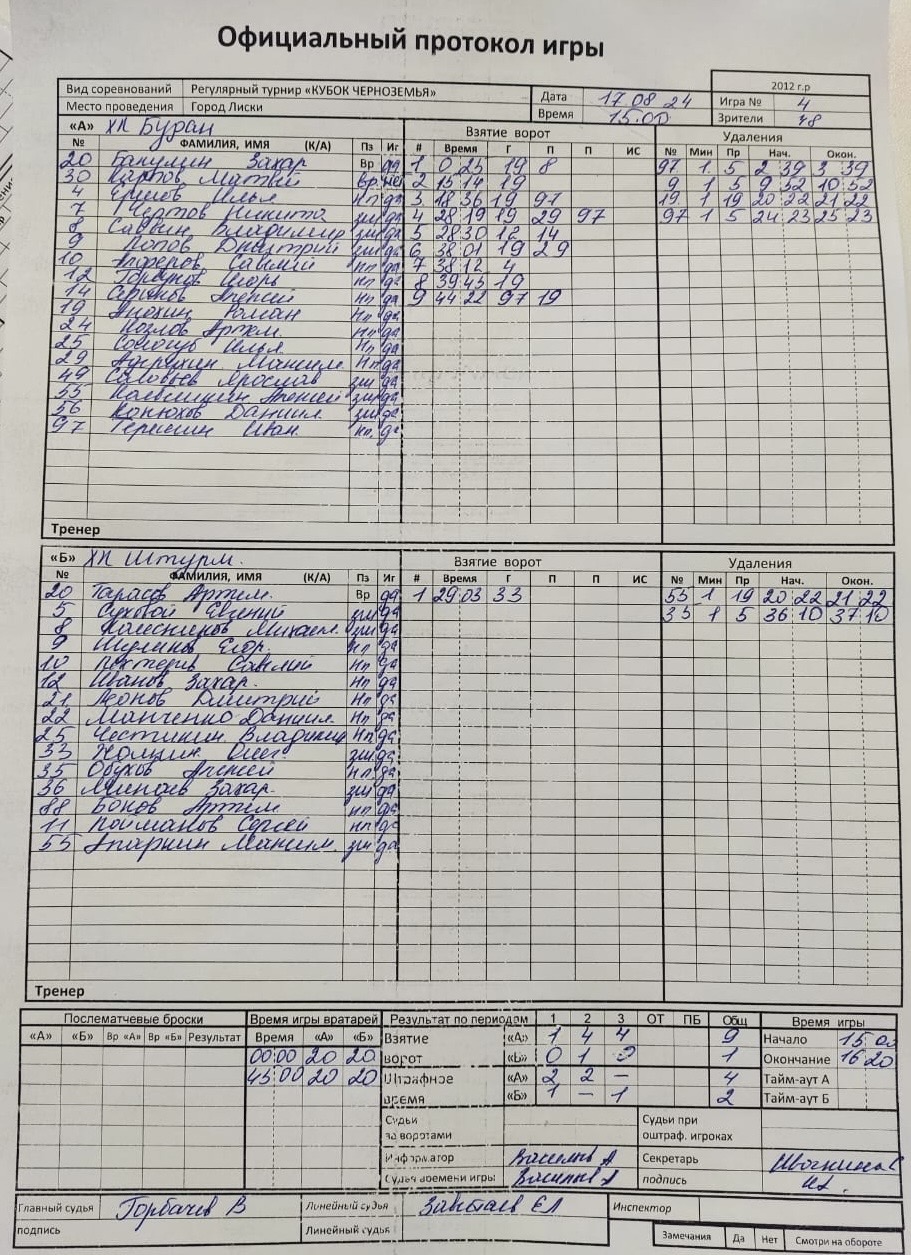 Официальный протокол игры
2012 г.р
Вид соревнований Регулярный турнир «КУБОК ЧЕРНОЗЕМЬЯ» Дата 17.08.24 Игра № 4
Место проведения Город Лиски Время 15.00 Зрители 48
«А» ХК Буран Взятие ворот Удаления
№ ФАМИЛИЯ, ИМЯ (К/А) Пз Иг # Время Г П П ИС № Мин Пр Нач. Окон.
20 Захар Вр да 1 0 25 19 8 97 1 5 2 39 3 39
30 Карпов Матвей Вр нет 2 15 14 19 9 1 5 9 52 10 52
4 Илья нп да 3 18 36 19 97 19 1 19 20 22 21 22
7 Чертов Никита зщ да 4 28 19 19 29 97 97 1 5 24 23 25 23
8 Саввин Владимир зщ да 5 28 30 12 14
9 Попов Дмитрий зщ да 6 38 01 19 29
10 Савелий нп да 7 38 12 4
12 Игорь нп да 8 39 43 19
14 Алексей нп да 9 44 22 97 19
19 Роман нп да
24 Козлов Артем нп да
25 Илья нп да
29 Максим нп да
49 Соловьев Ярослав зщ да
55 Алексей зщ да
56 Конюхов Даниил зщ да
97 Иван нп. да
Тренер
«Б» ХК Штурм. Взятие ворот Удаления
№ ФАМИЛИЯ, ИМЯ (К/А) Пз Иг # Время Г П П ИС № Мин Пр Нач. Окон.
20 Тарасов Артем. Вр да 1 29 03 33 55 1 19 20 22 21 22
5 Суховой Евгений зщ да 35 1 5 36 10 37 10
8 Колесников Михаил зщ да
9 Егор. нп да
10 Савелий нп да
12 Иванов Захар. нп да
21 Леонов Дмитрий нп да
22 Манченко Даниил нп да
25 Владимир нп да
33 Олег зщ да
35 Обухов Алексей нп да
36 Минаев Захар. зщ да
88 Боков Артём нп да
11 Койманов Сергей нп да
55 Апаркин Максим. зщ да
Тренер
Послематчевые броски Время игры вратарей Результат по периодам 1 2 3 ОТ ПБ Общ Время игры
«А» «Б» Вр «А» Вр «Б» Результат Время «А» «Б» Взятие «А» 1 4 4 9 Начало 15 00
00:00 20 20 ворот «Б» 0 1 0 1 Окончание 16 20
45:00 20 20 Штрафное «А» 2 2 – 4 Тайм-аут А
время «Б» 1 – 1 2 Тайм-аут Б
Судьи за воротами Судьи при оштраф. игроках
Информатор Секретарь
Судья времени игры подпись
Главный судья Горбачев В Линейный судья Инспектор
подпись Линейный судья Замечания Да Нет Смотри на обороте